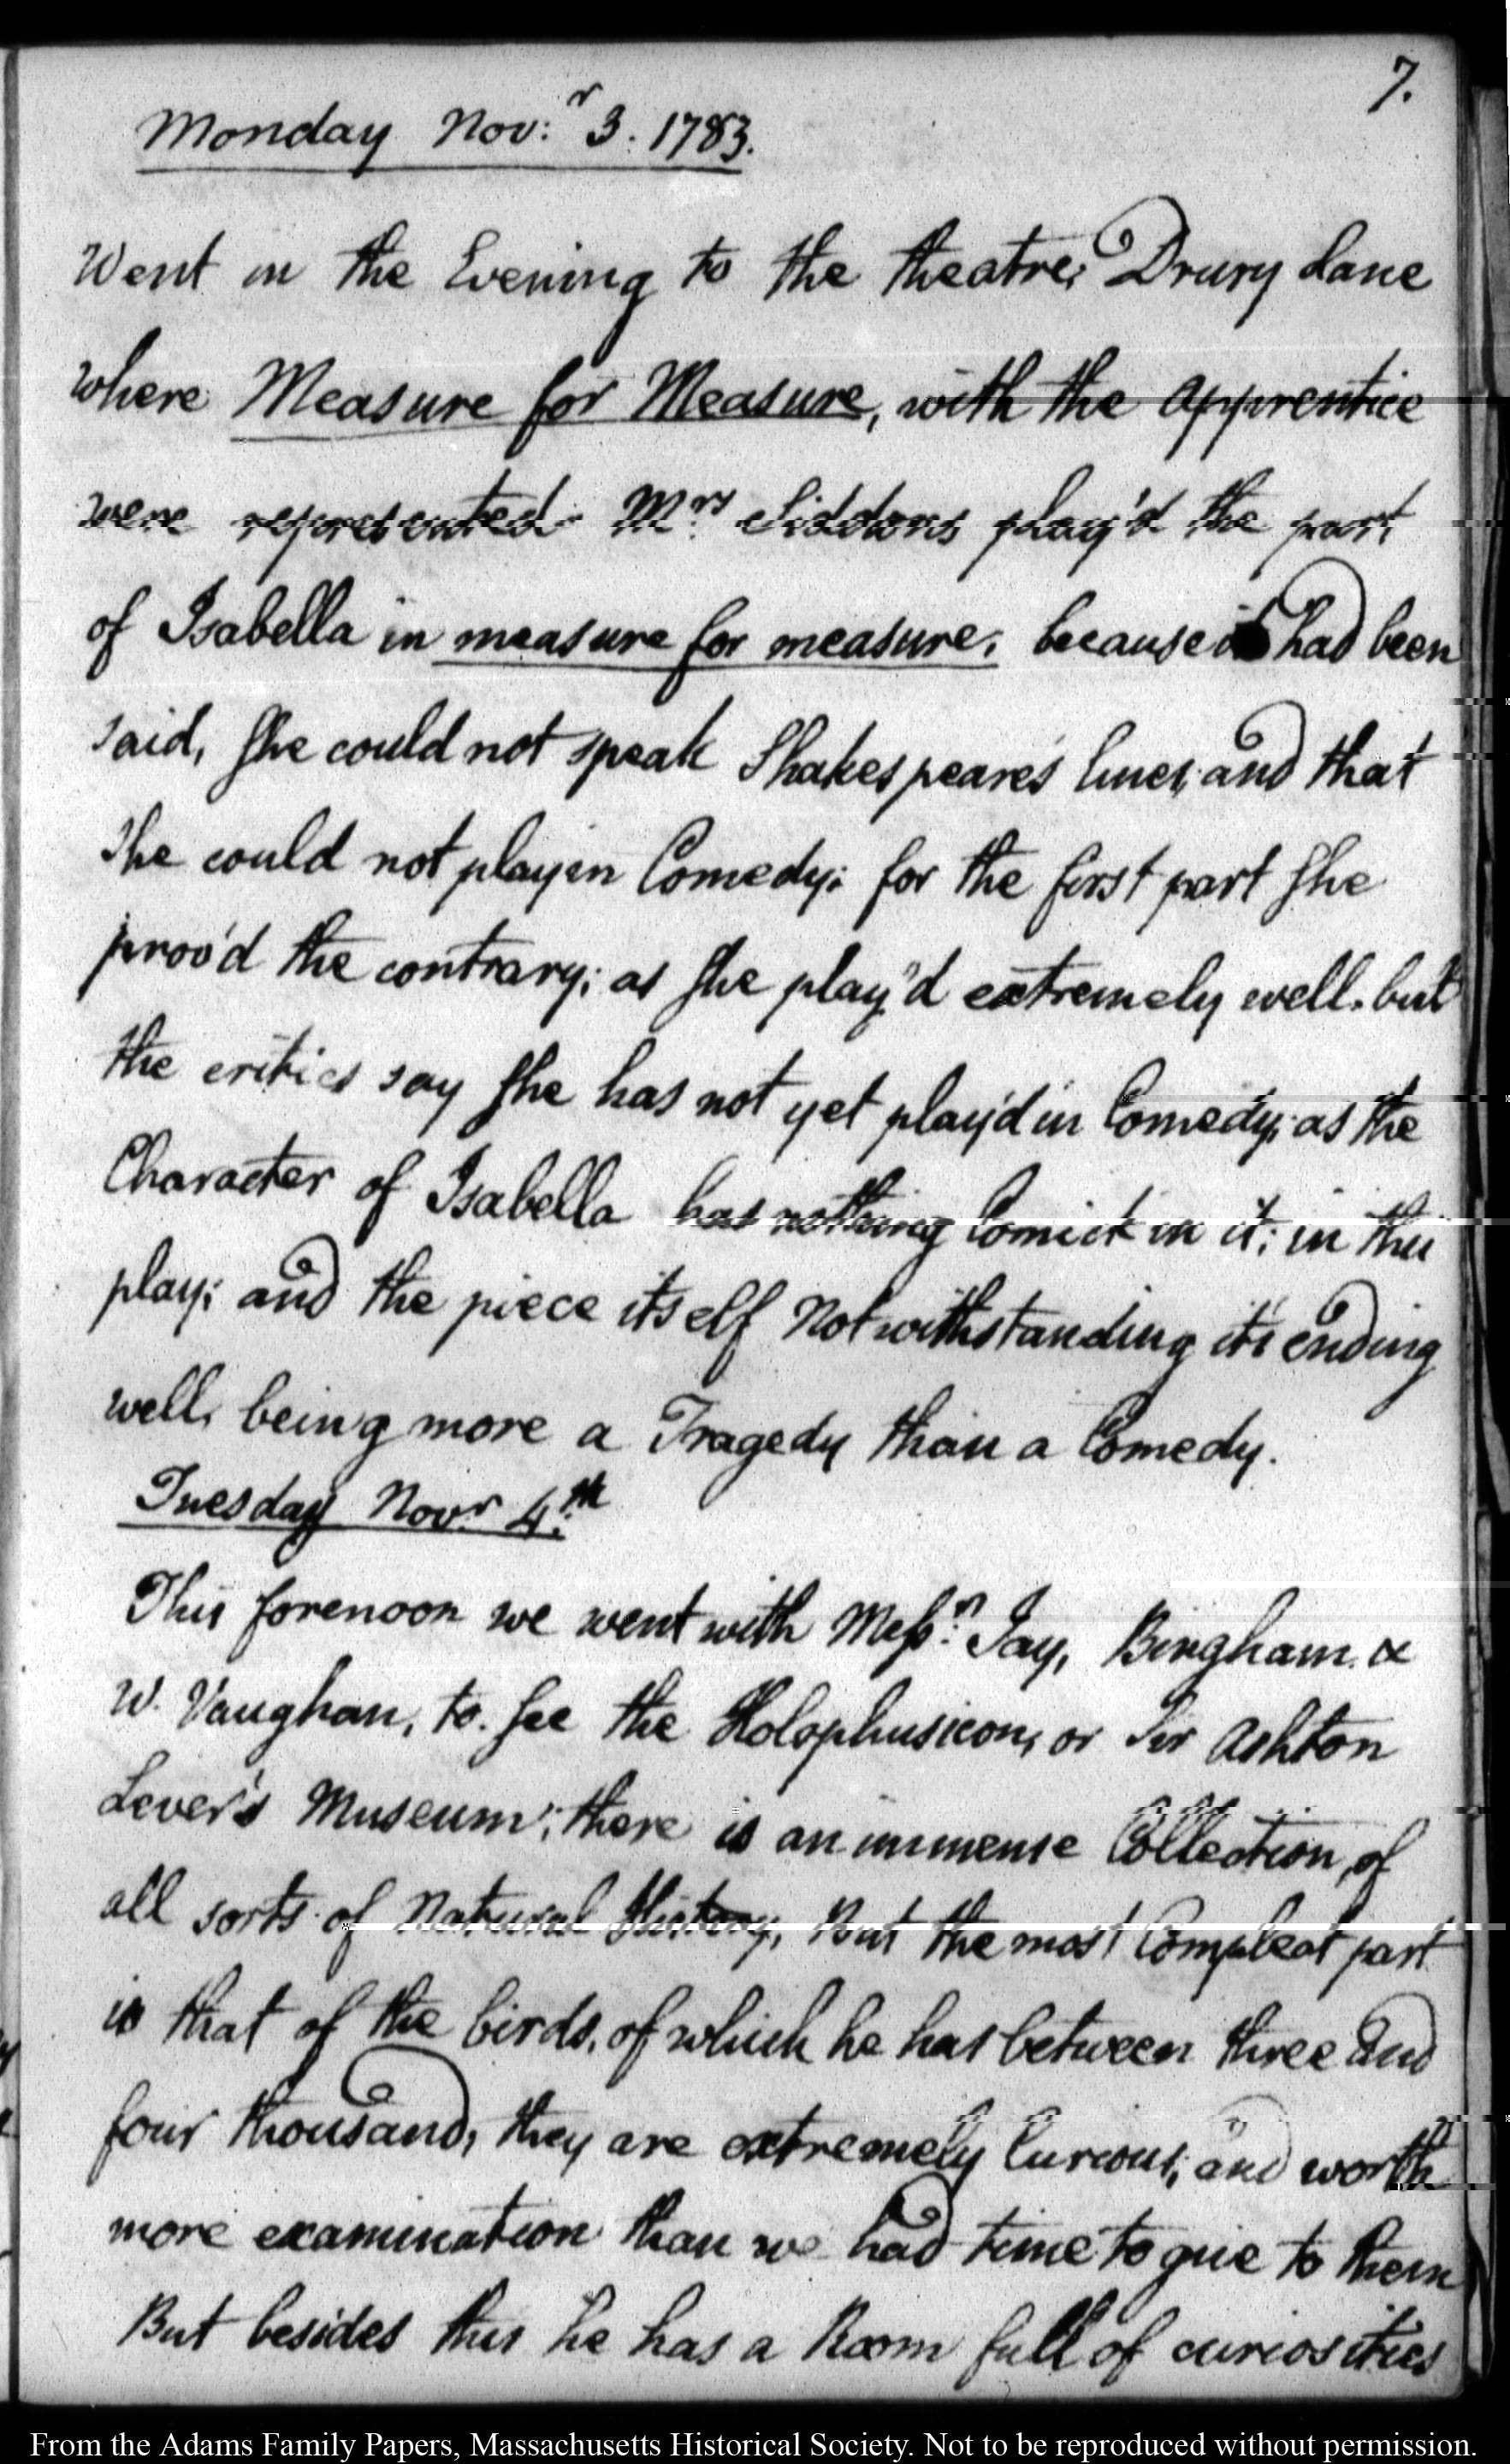 7.
Monday Nov:r 3. 1783.
Went in the Evening to the theatre, Drury Lane
where Measure for Measure, with the apprentice
were represented. Mrs. Siddons play'd the part
of Isabella in measure for measure. because it had been
said, she could not speak Shakespeare's lines, and that
she could not play in Comedy; for the first part she
prov'd the contrary; as she play'd extremely well. but
the critics say she has not yet play'd in Comedy; as the
Character of Isabella has nothing Comick in it; in this
play; and the piece itself Notwithstanding it's ending
well, being more a Tragedy than a Comedy.
Tuesday Novr. 4.th
This forenoon we went with Messrs. Jay, Bingham. &
W. Vaughan, to. see the Holophusicon, or Sir Ashton
Lever's Museum; there is an immense Collection, of
all sorts of Natural History, But the most Compleat part
is that of the birds, of which he has between three and
four thousand, they are extremely Curious, and worth
more examination than we had time to give to them
But besides this he has a Room full of curiosities
From the Adams Family Papers, Massachusetts Historical Society. Not to be reproduced without permission.